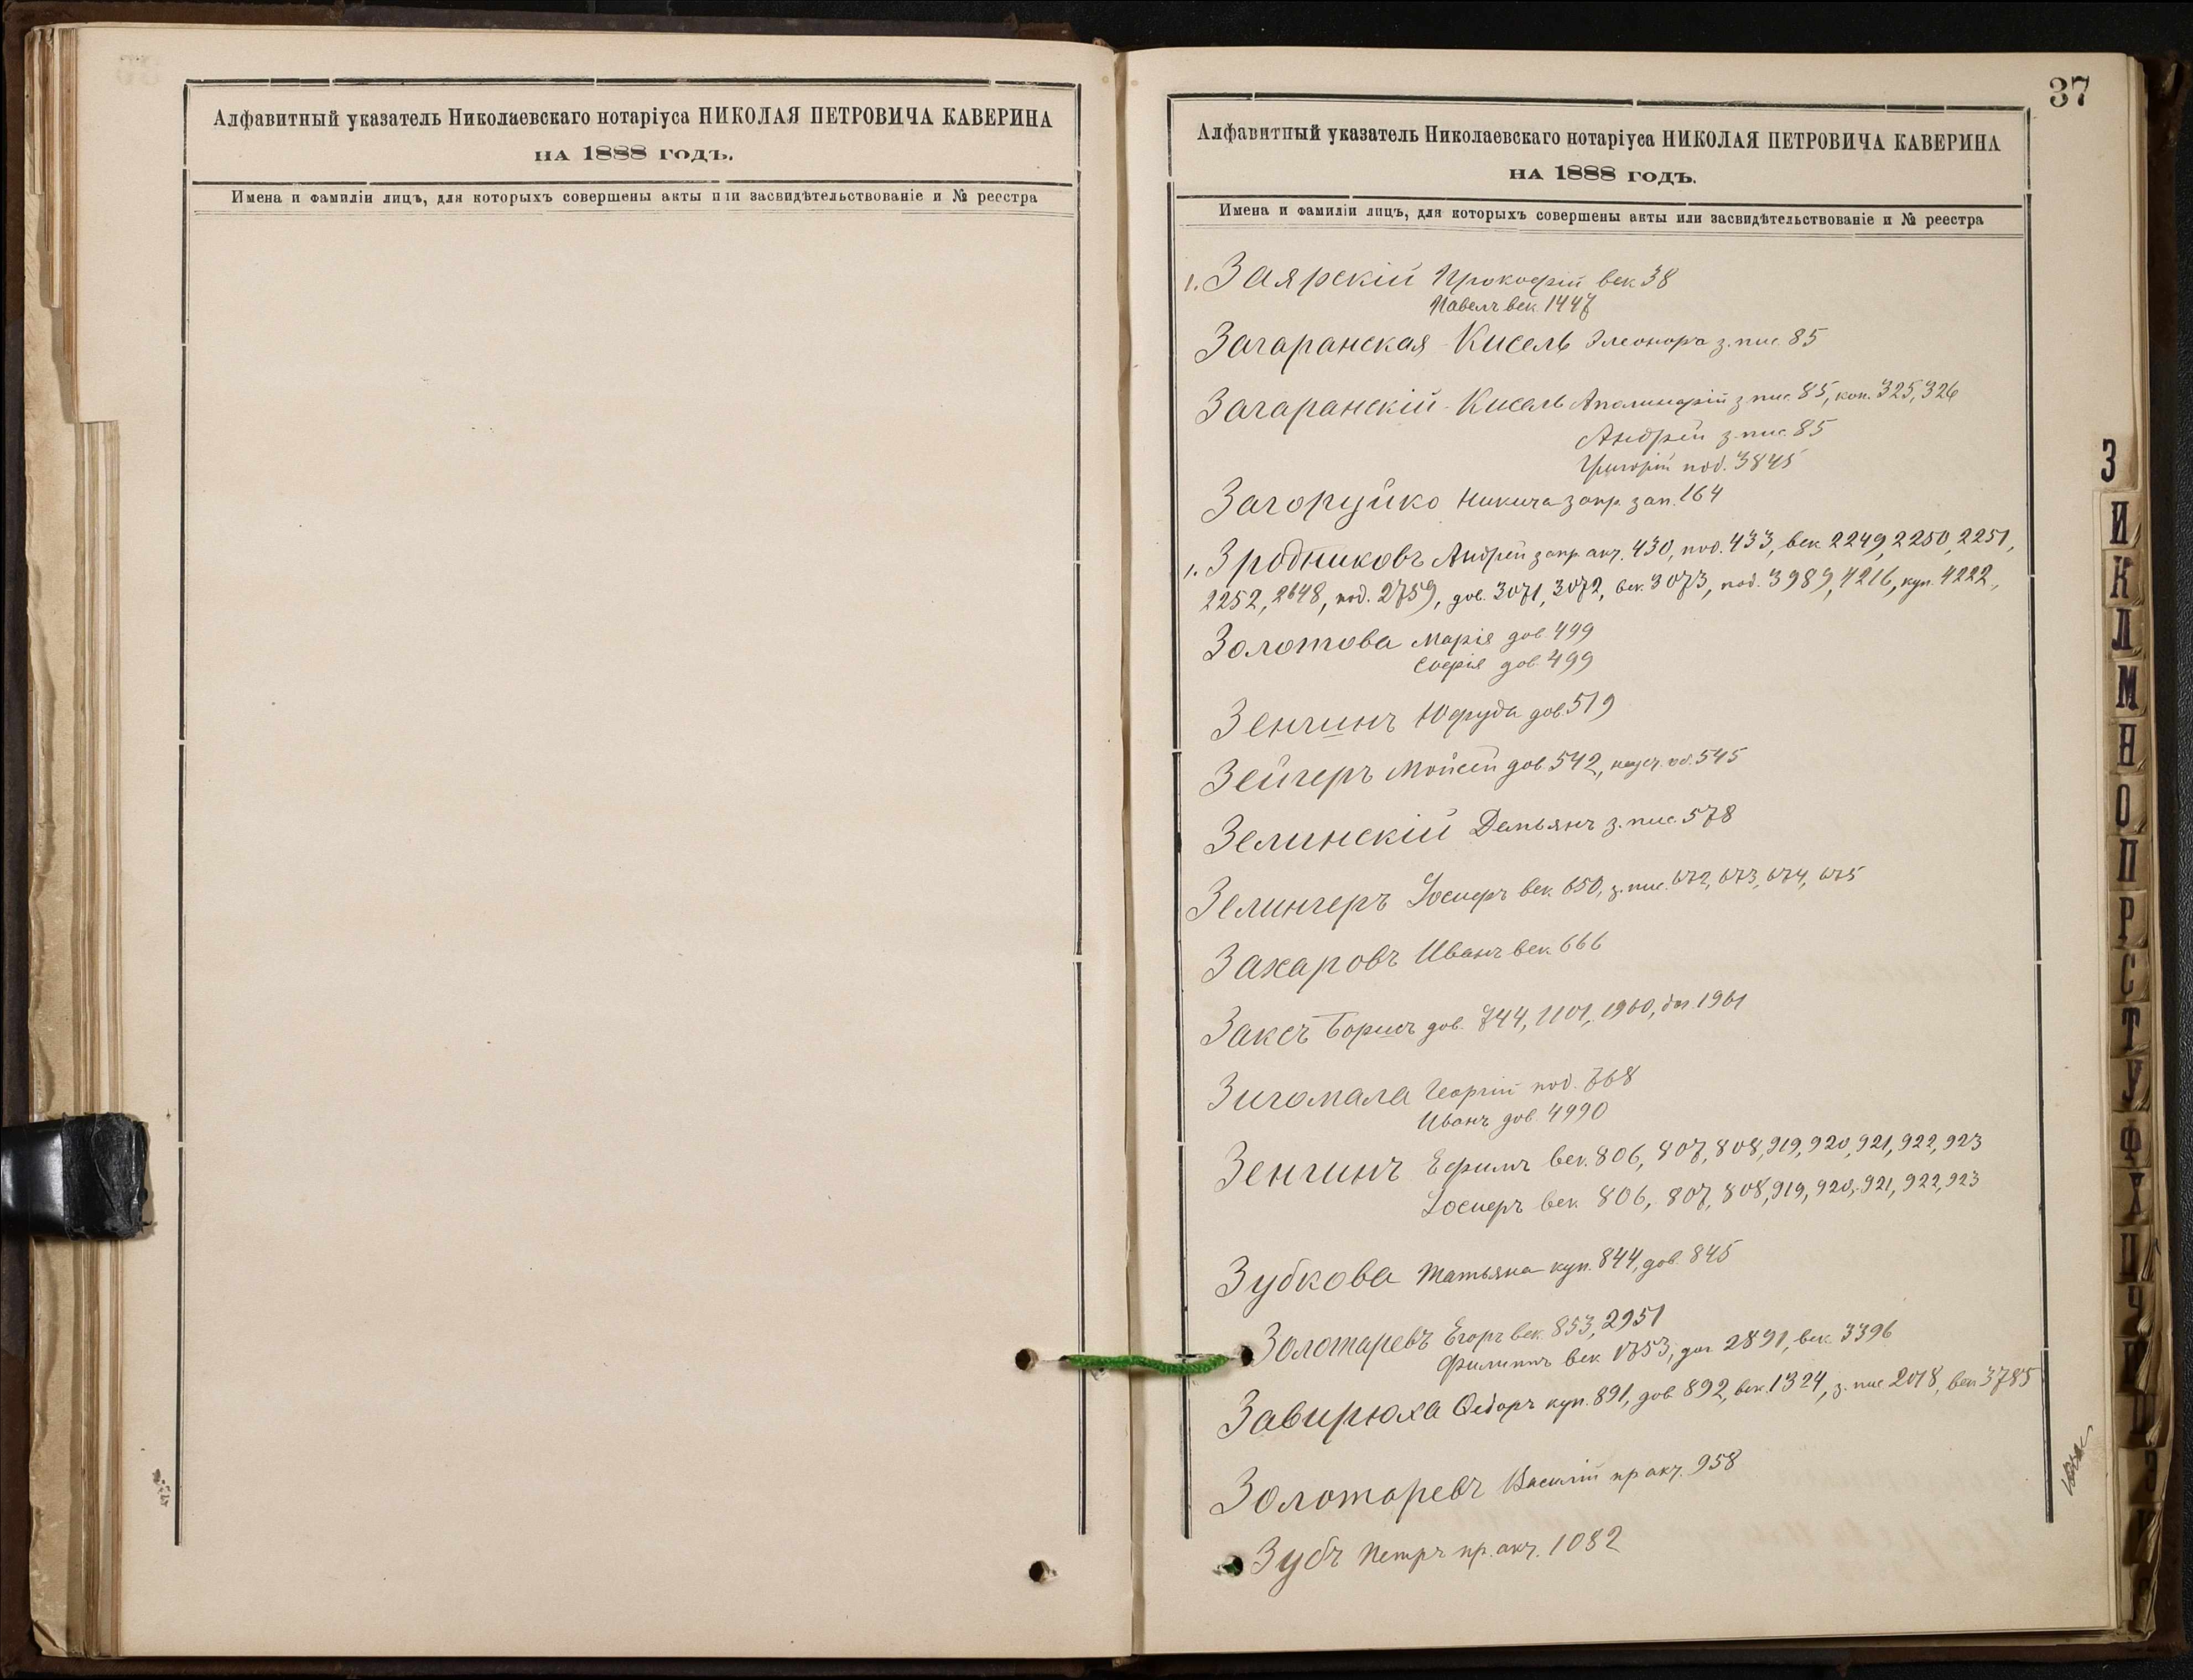 Алфавитный указатель Николаевскаго нотаріуса НИКОЛАЯ ПЕТРОВИЧА КАВЕРИНА
НА 1888 ГОДЪ.
Имена и фамиліи лицъ, для которыхъ совершены акты или засвидѣтельствованіе и № реестра
37
Алфавитный указатель Николаевскаго нотаріуса НИКОЛАЯ ПЕТРОВИЧА КАВЕРИНА
НА 1888 ГОДЪ.
Имена и фамиліи лицъ, для которыхъ совершены акты или засвидѣтельствованіе и № реестра
1. Заярскій Прокофій век 38
Павелъ век. 1447
Загаранская-Кисель Элеонора з. пис. 85
Загаранскій-Кисель Аполинарій з пис. 85, коп. 325, 326
Андрей з. пис. 85
Григорій под. 3845
Загоруйко Никита запр. зап. 164
1. Зродниковъ Андрей запр. акт. 430, под. 433, век 2249, 2250, 2251,
2252, 2648, под. 2759, дов. 3071, 3072, век. 3073, под. 3989, 4216, куп. 4222,
Золотова Марія дов. 499
Софія дов. 499
Зенгинъ Юфуда дов. 519
Зейгеръ Мойсей дов. 542, 545
Зелинскій Демьянъ з. пис. 578
Зелингеръ Іосифъ век. 650, з. пис. 672, 673, 674, 675
Захаровъ Иванъ век. 666
Заксъ Борисъ дов. 744, 1101, 1960, 1961
Зигомала Георгій под. 768
Иванъ дов. 4990
Зенгинъ Ефимъ век. 806, 807, 808, 919, 920, 921, 922, 923
Іосифъ век. 806, 807, 808, 919, 920, 921, 922, 923
Зубкова Татьяна куп. 844, дов. 845
Золотаревъ Егоръ век. 853, 2951
Филиппъ век 1753, дог 2891, век. 3396
Завирюха Ѳедоръ куп. 891, дов. 892, век. 1324, з. пис 2018, век 3785
Золотаревъ Василій пр акт. 958
Зубъ Петръ пр. акт. 1082
З
И
К
Л
М
Н
О
П
Р
С
Т
У
Ф
Х
Ц
Ч